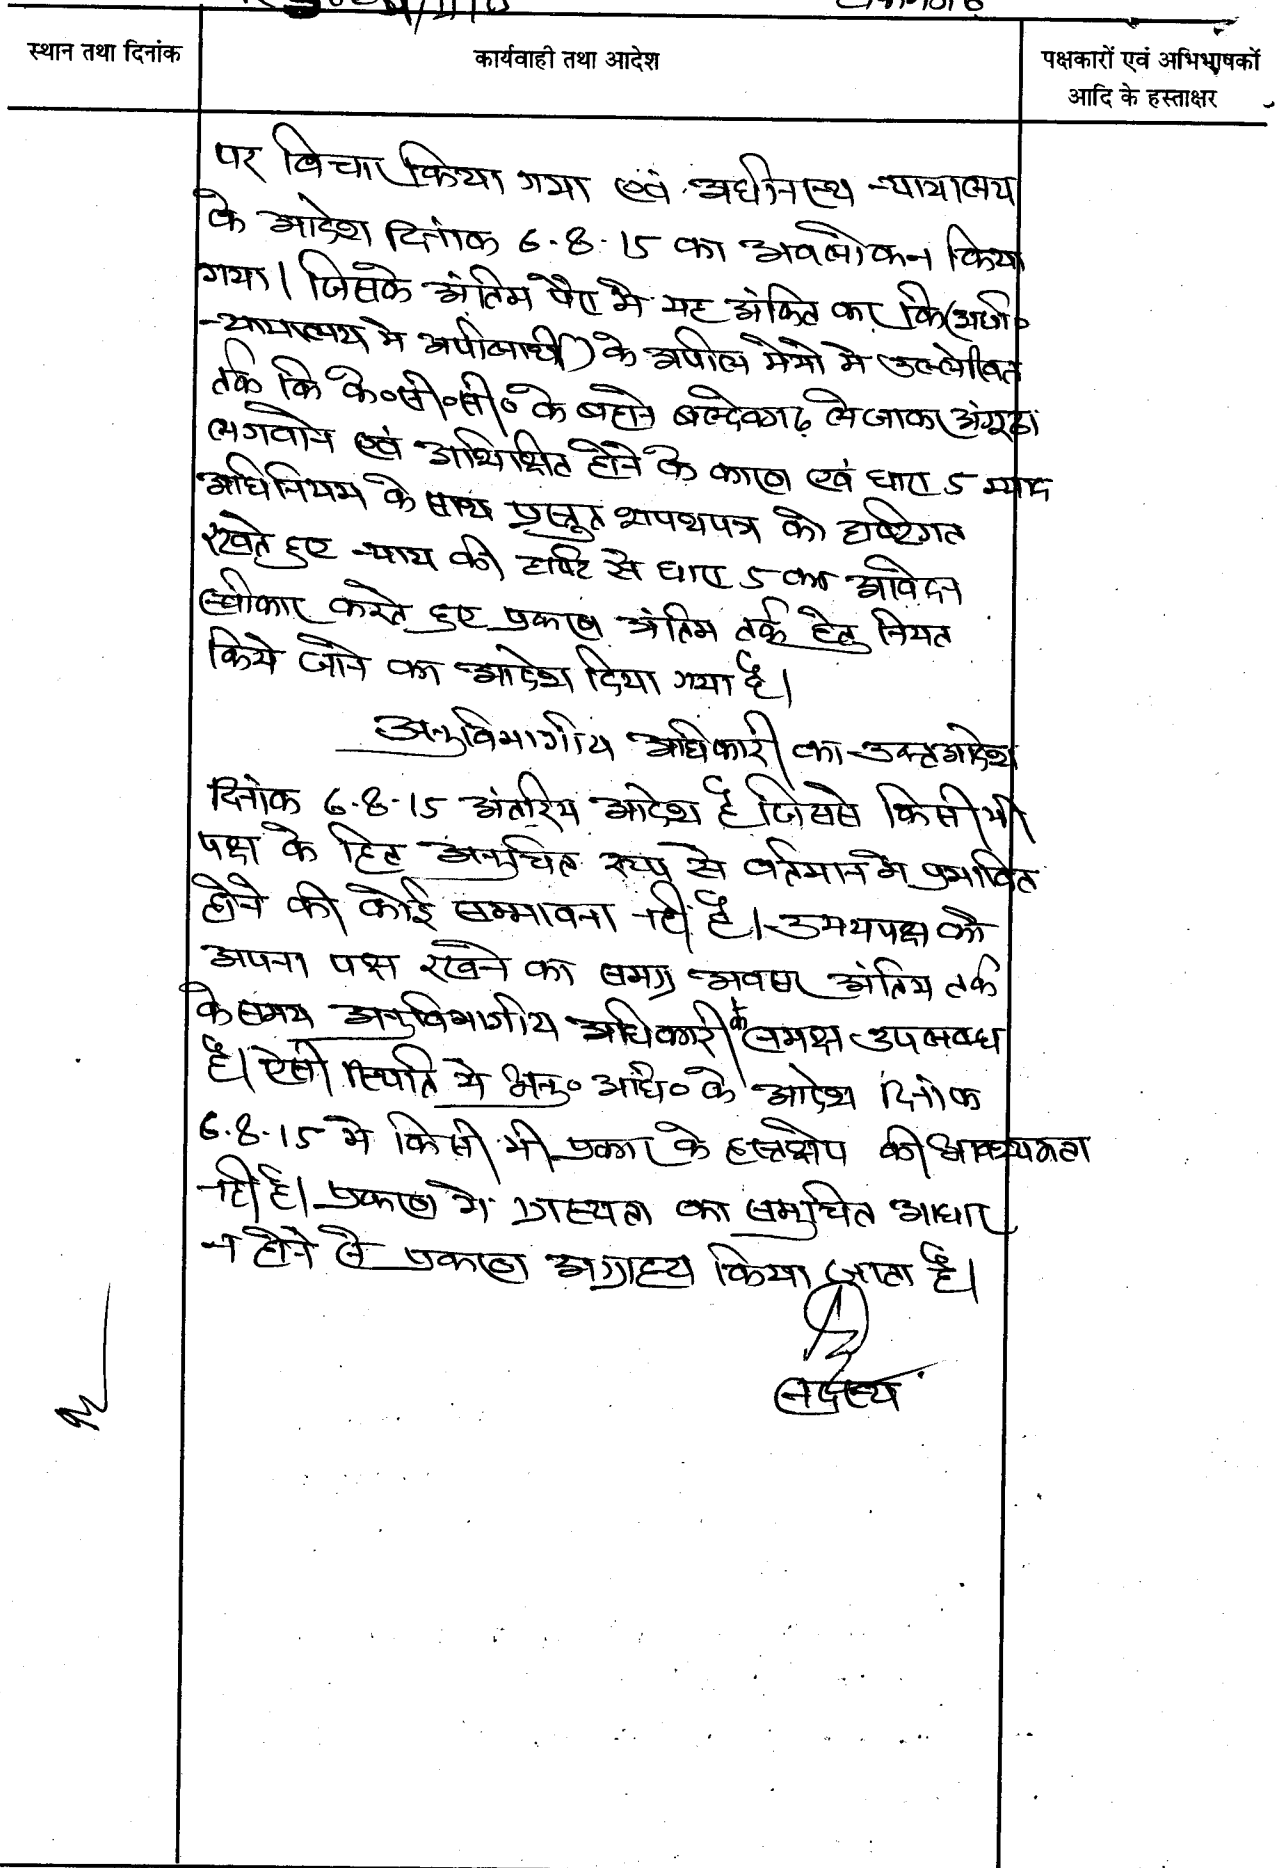 स्थान तथा दिनांक
कार्यवाही तथा आदेश
पक्षकारों एवं अभिभाषकों
आदि के हस्ताक्षर
पर विचार किया गया एवं अधीनस्थ न्यायालय
के आदेश दिनांक 6.8.15 का अवलोकन किया
गया। जिसके अंतिम पैरा में यह अंकित कर कि (अधी०
न्यायालय में अपीलार्थी) के अपील मेमो में उल्लेखित
तर्क कि के०सी०सी० के बहाने बल्देवगढ़ लेजाकर अंगूठा
लगवाने एवं अशिक्षित होने के कारण एवं धारा 5 म्याद
अधिनियम के साथ प्रस्तुत शपथपत्र को दृष्टिगत
रखते हुए न्याय की दृष्टि से धारा 5 का आवेदन
स्वीकार करते हुए प्रकरण अंतिम तर्क हेतु नियत
किये जाने का आदेश दिया गया है।
अनुविभागीय अधिकारी का उक्त आदेश
दिनांक 6.8.15 अंतरिम आदेश है जिससे किसी भी
पक्ष के हित अनुचित रूप से वर्तमान में प्रभावित
होने की कोई सम्भावना नहीं है। उभयपक्ष को
अपना पक्ष रखने का समग्र अवसर अंतिम तर्क
के समय अनुविभागीय अधिकारी के समक्ष उपलब्ध
है। ऐसी स्थिति में अनु० अधि० के आदेश दिनांक
6.8.15 में किसी भी प्रकार के हस्तक्षेप की आवश्यकता
नहीं है। प्रकरण में ग्राह्यता का समुचित आधार
न होने से प्रकरण अग्राह्य किया जाता है।
सदस्य